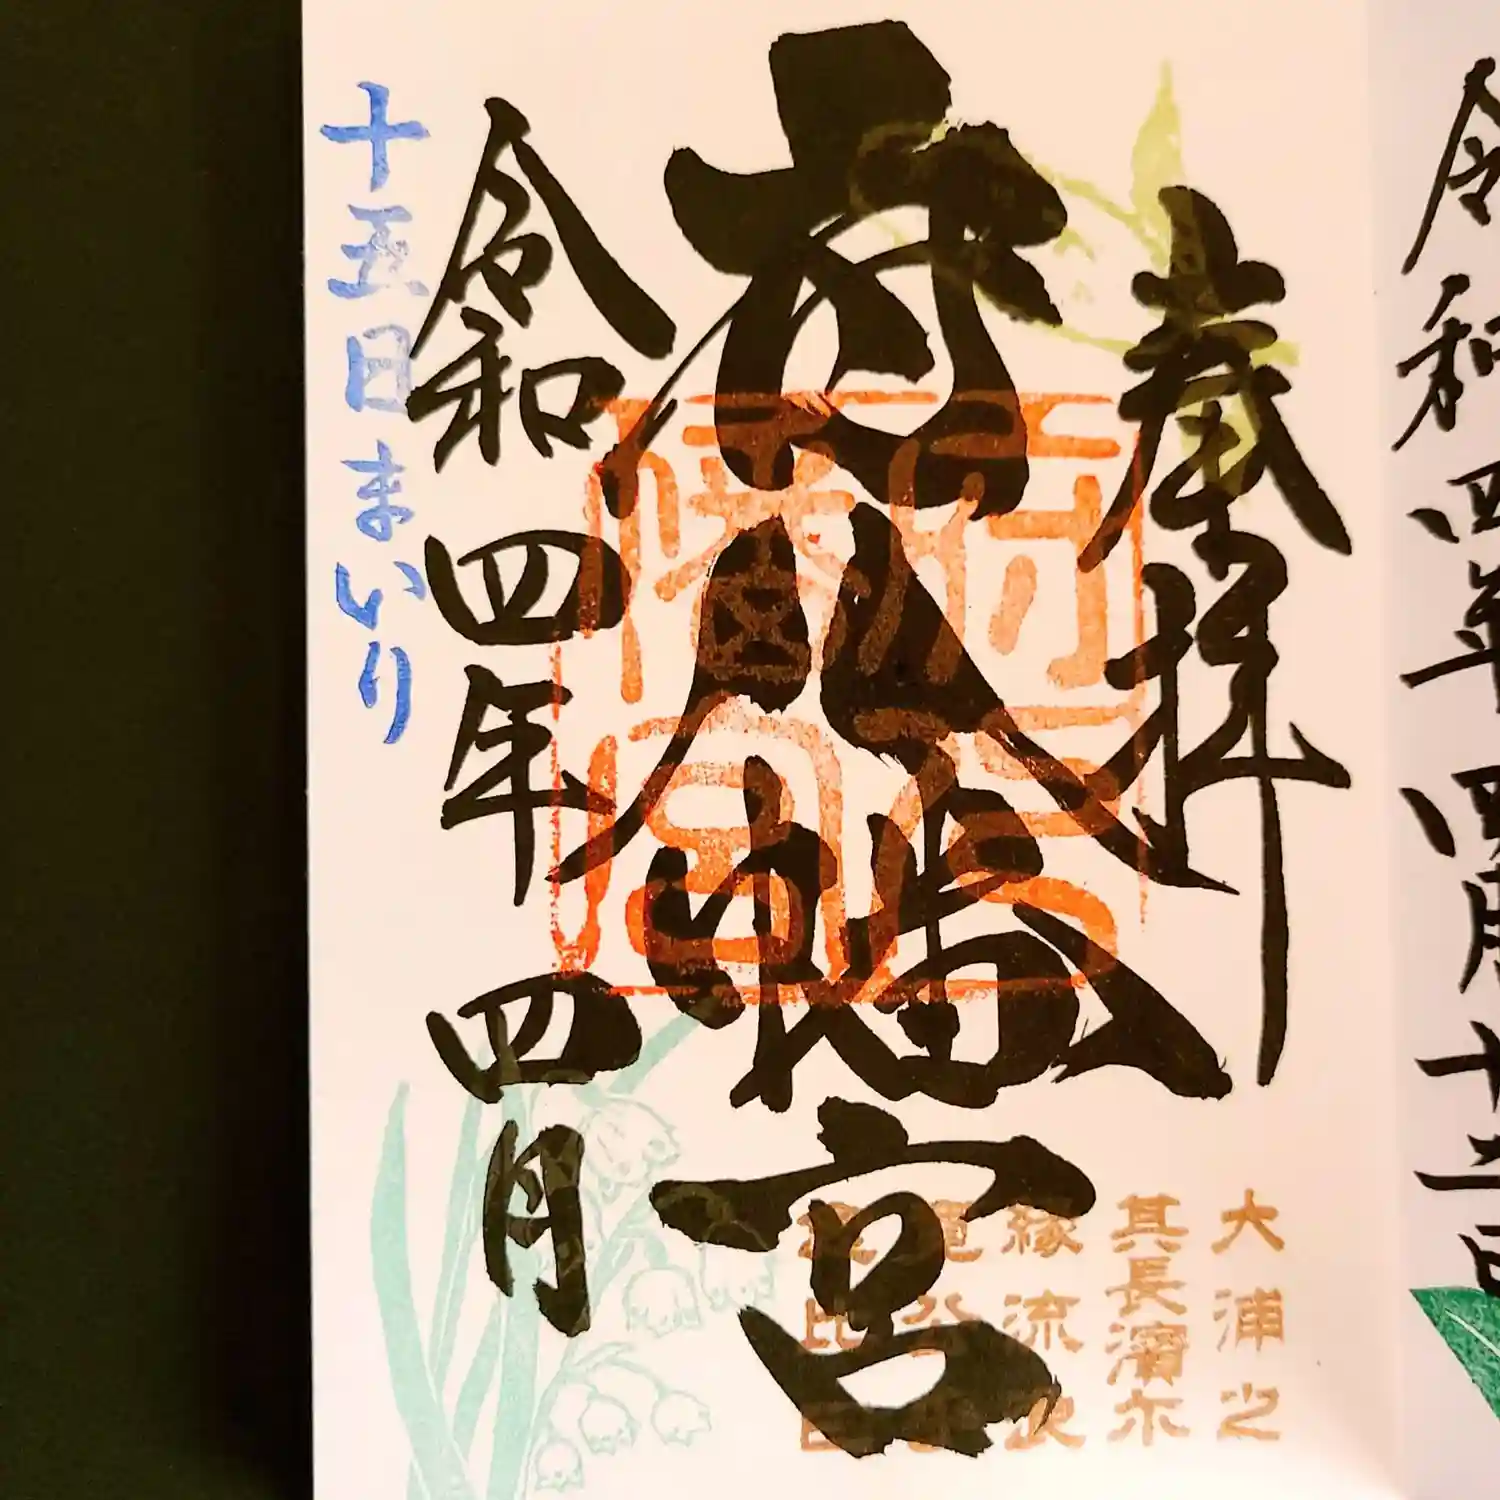 令和四年四月十二日
奉拝
府八幡宮
令和四年四月
十五日まいり
大浦之
其長濱尓
縁流
比日